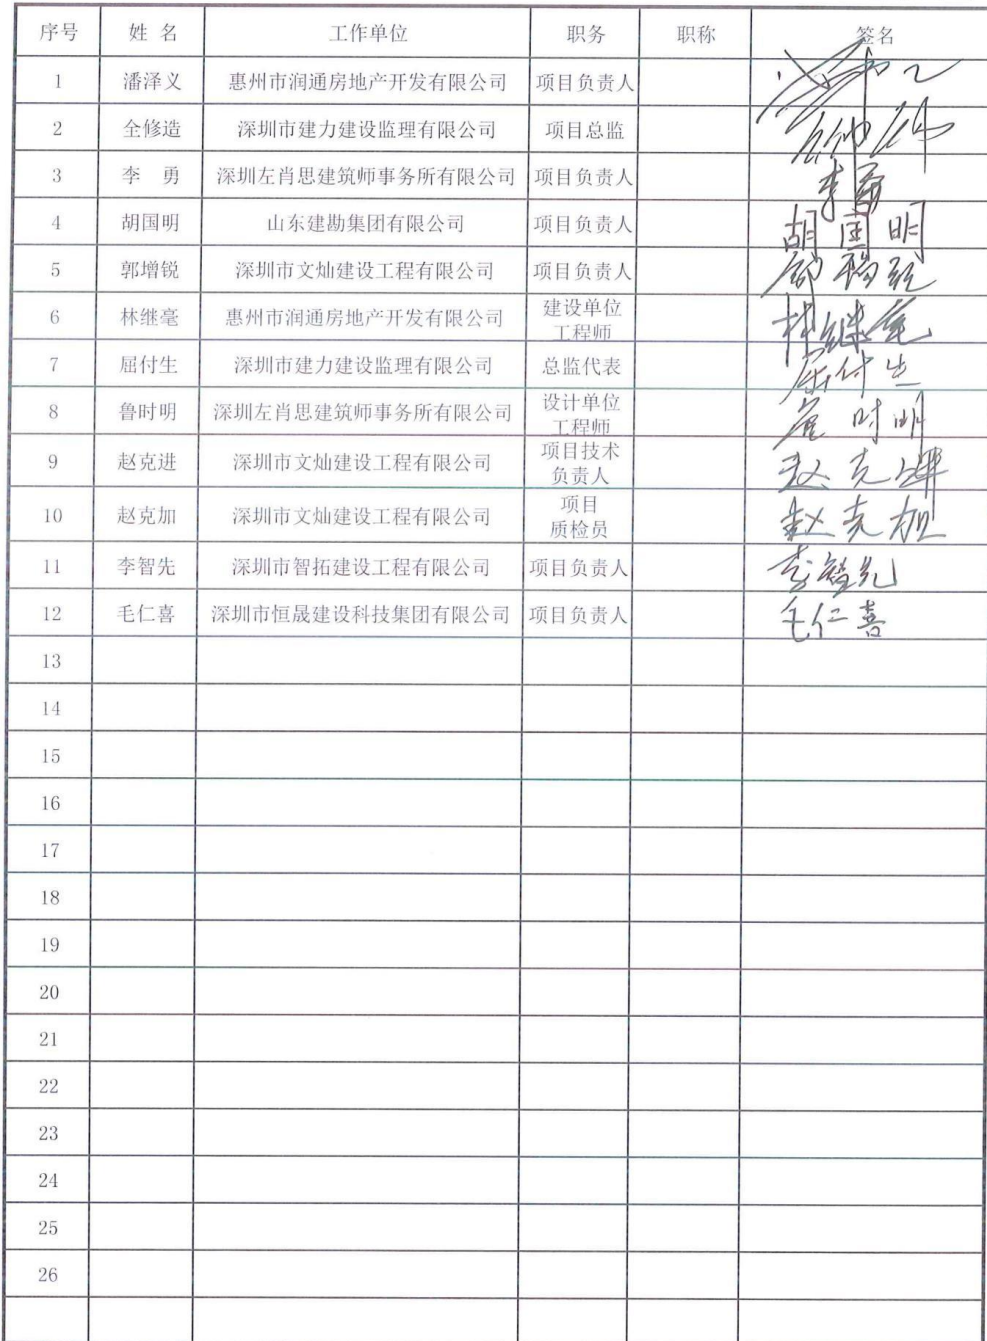 序号 姓 名 工作单位 职务 职称 签名
1 潘泽义 惠州市润通房地产开发有限公司 项目负责人
2 全修造 深圳市建力建设监理有限公司 项目总监
3 李 勇 深圳左肖思建筑师事务所有限公司 项目负责人 李勇
4 胡国明 山东建勘集团有限公司 项目负责人 胡国明
5 郭增锐 深圳市文灿建设工程有限公司 项目负责人
6 林继毫 惠州市润通房地产开发有限公司 建设单位
工程师 林继毫
7 屈付生 深圳市建力建设监理有限公司 总监代表 屈付生
8 鲁时明 深圳左肖思建筑师事务所有限公司 设计单位
工程师 时明
9 赵克进 深圳市文灿建设工程有限公司 项目技术
负责人 赵克
10 赵克加 深圳市文灿建设工程有限公司 项目
质检员 赵克加
11 李智先 深圳市智拓建设工程有限公司 项目负责人 李智先
12 毛仁喜 深圳市恒晟建设科技集团有限公司 项目负责人 毛仁喜
13
14
15
16
17
18
19
20
21
22
23
24
25
26